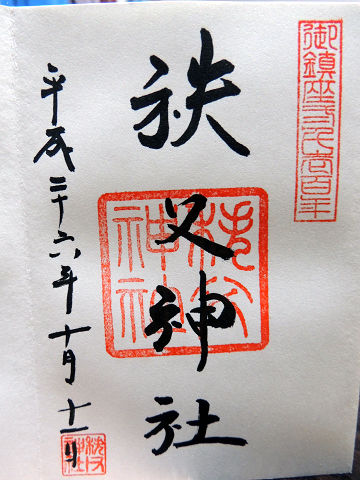 御鎮座弐阡壱百年
秩父神社
秩父神社
平成二十六年十月十一日
秩父神社